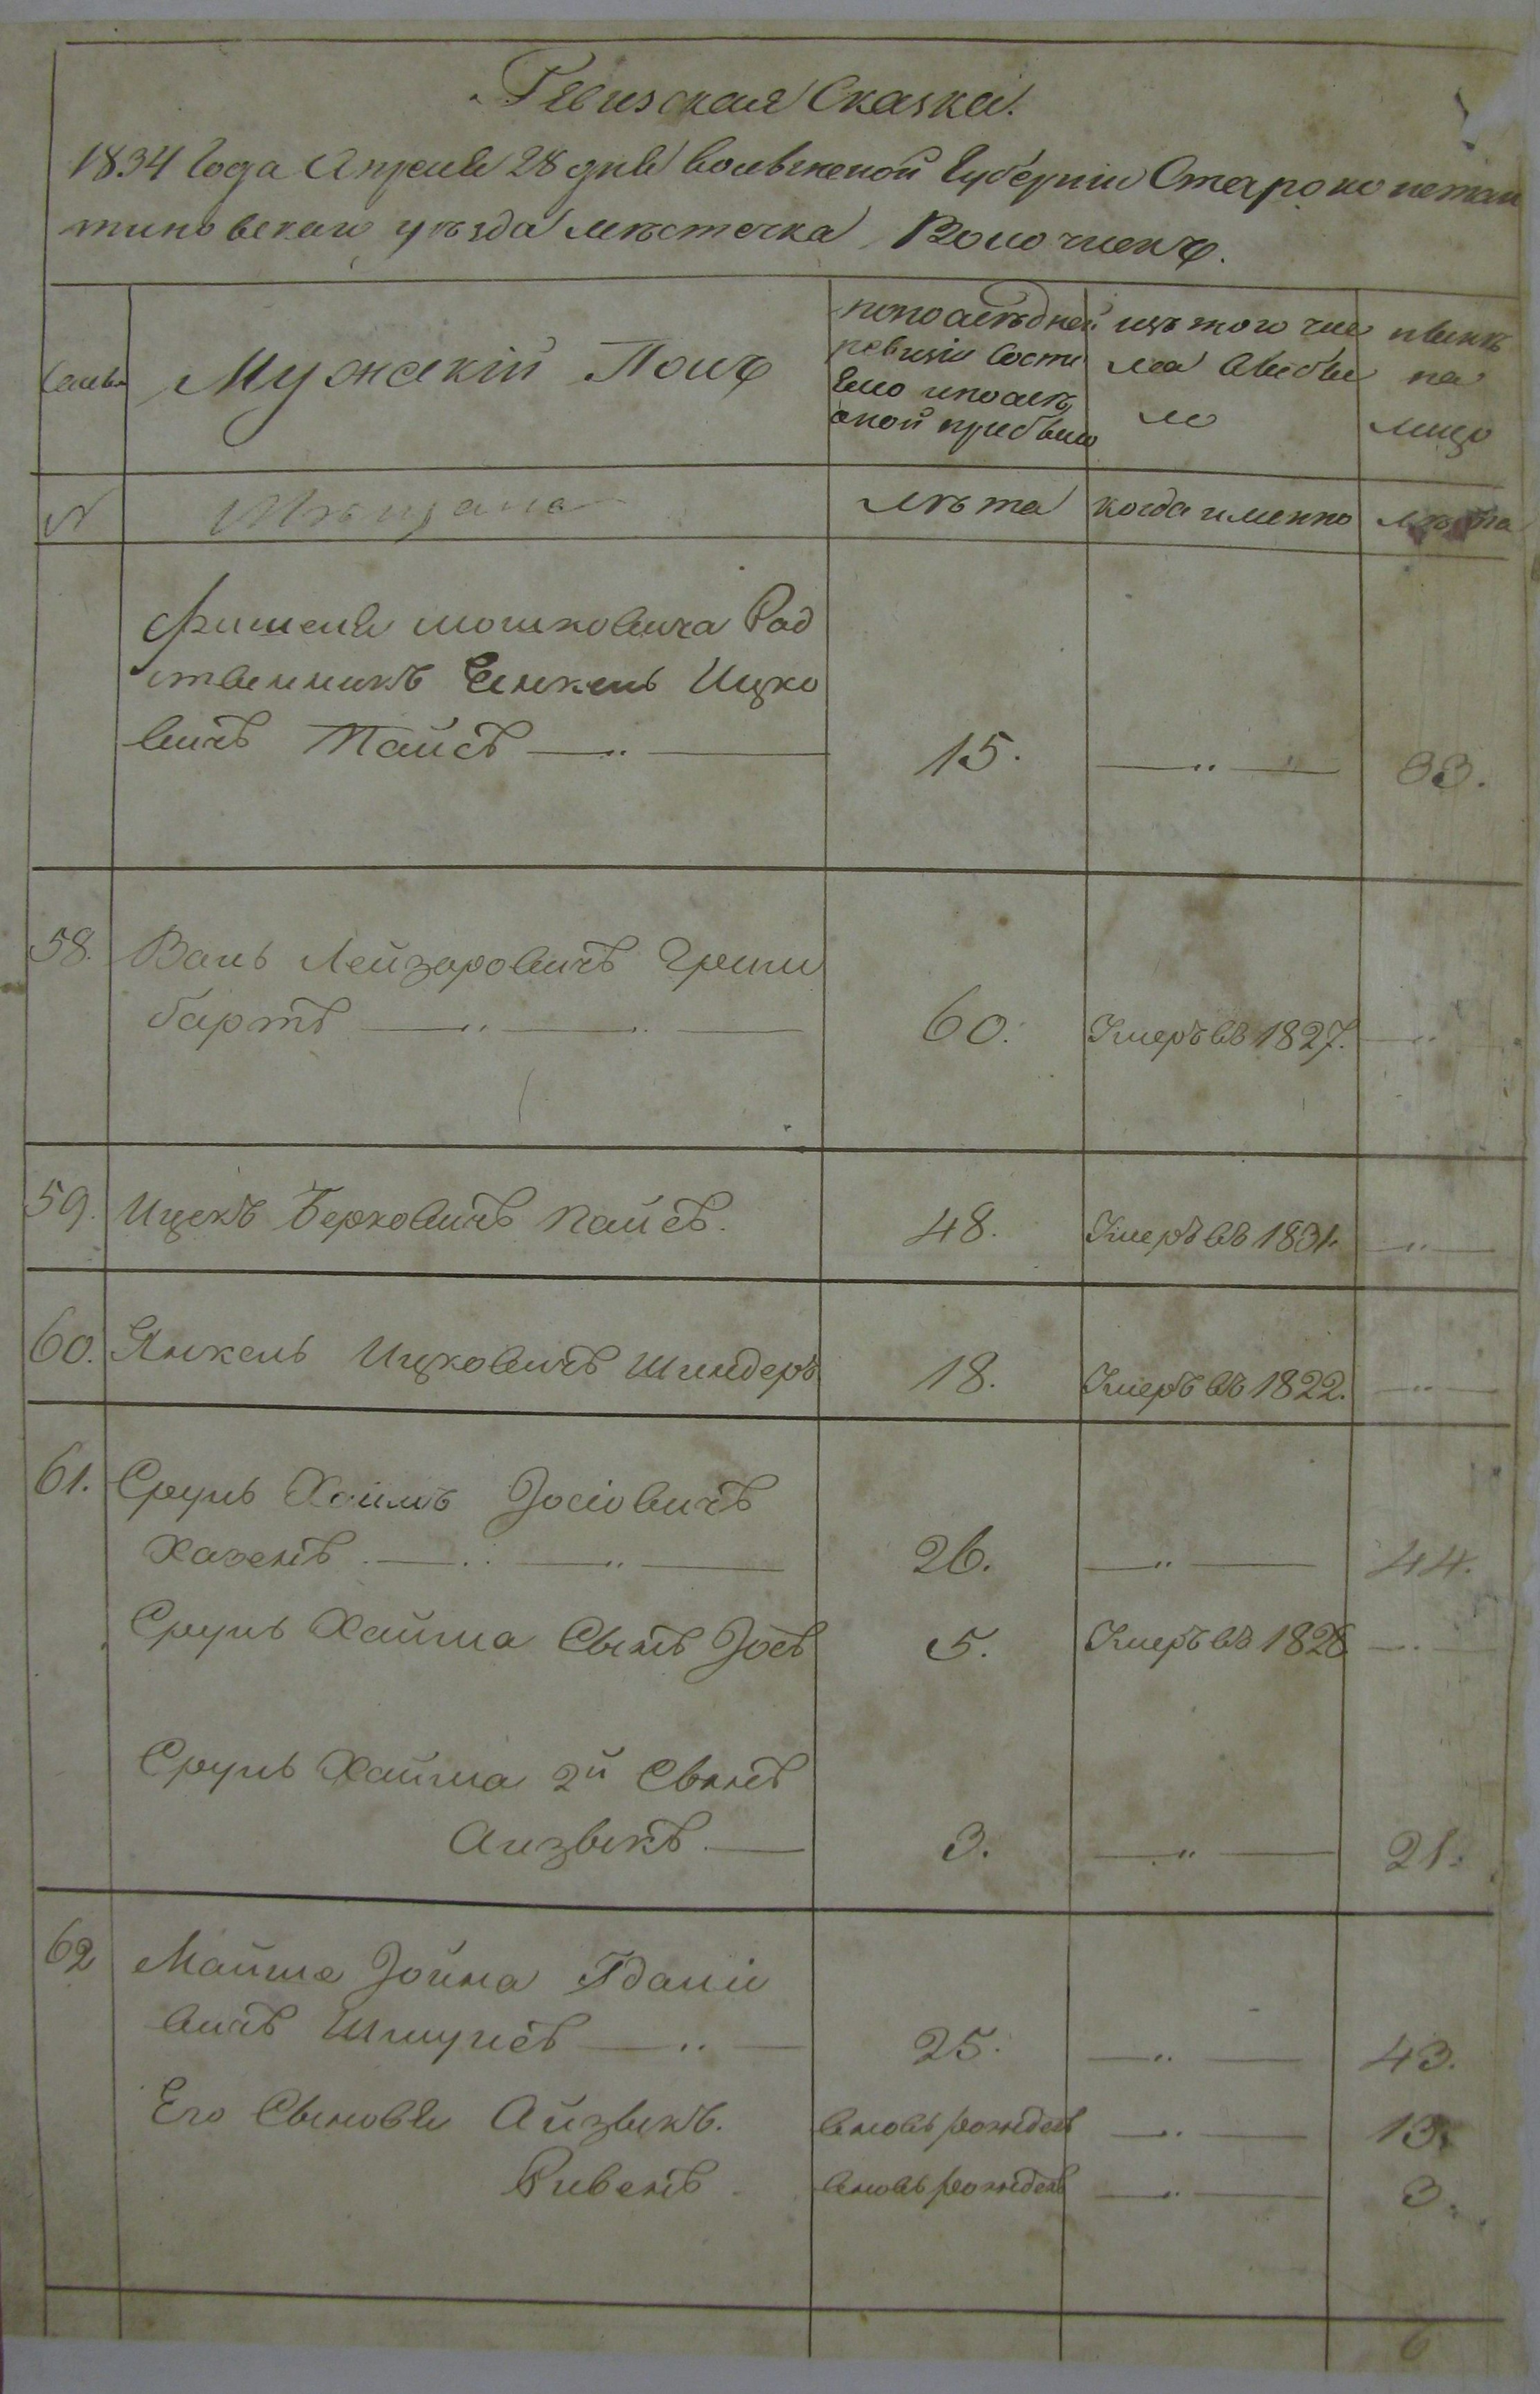 Ревизская Сказка.
1834 Года Апреля 28 дня Волынской Губернии Старо констан
тиновскаго уезда местечка Волочискъ.
Семьи Мужескій Полъ по последней ревизіи Состо яло и после оной прибыло изъ того чис ла Выбы ло ныне на лицо
№ Мещане лѣта когда именно лѣта
Фишеля Мошковича Род
ственникъ Янкель Ицко
вичъ Пайсъ — 15. — „ — 33.
58. Волъ Лейзоровичъ Грин
бартъ — 60. Умеръ въ 1827. — „
59. Ицекъ Берковичъ Пайсъ. 48. Умеръ въ 1831. — „ —
60. Янкель Ицковичъ Шиндеръ 18. Умеръ въ 1822. — „ —
61. Сруль Хаимъ Іосіовичъ
Хазенъ. — „ — 26. — „ — 44.
Сруль Хаима Сынъ Іосъ 5. Умеръ въ 1826 — „ —
Сруль Хаима 2й Сынъ
Аизыкъ — 3. — „ — 21.
62 Майше Іойна
вичъ Шмулисъ — „ — 25. — „ — 43.
Его Сыновья Айзыкъ. вновь рожденъ — „ — 13.
Ривенъ. вновь рожденъ — „ — 3.
6